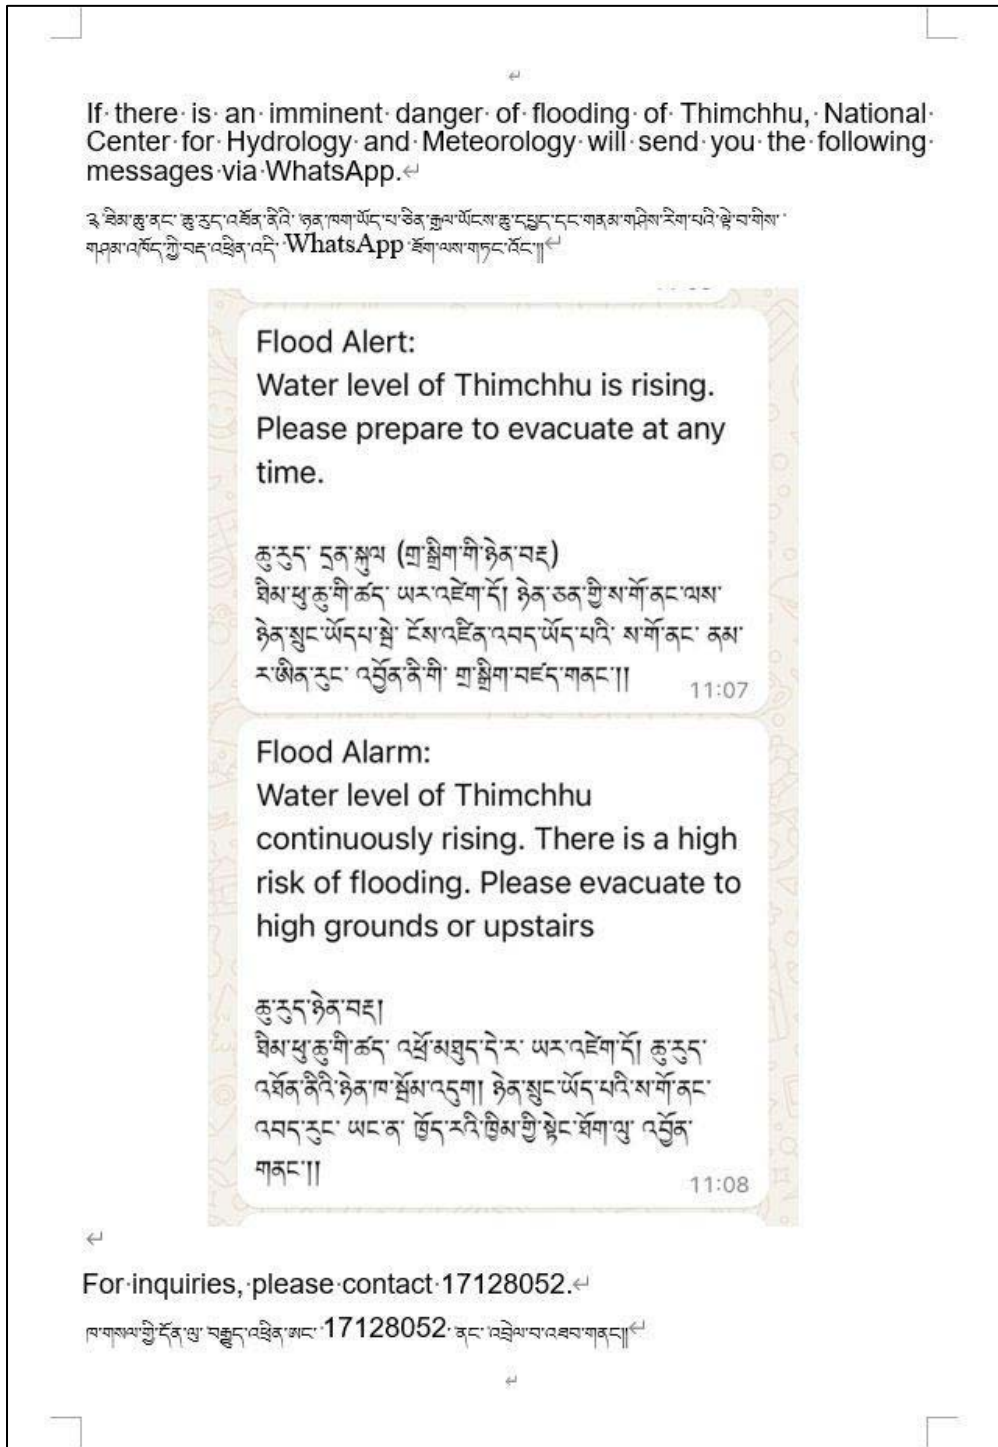 If there is an imminent danger of flooding of Thimchhu, National
Center for Hydrology and Meteorology will send you the following
messages via WhatsApp.
༣ ཐིམ་ཆུ་ནང་ ཆུ་རུད་འཐོན་ནིའི་ ཉན་ཁག་ཡོད་པ་ཅིན་རྒྱལ་ཡོངས་ཆུ་དཔྱད་དང་གནམ་གཤིས་རིག་པའི་ལྟེ་བ་གིས་
གཤམ་འཁོད་ཀྱི་བརྡ་འཕྲིན་འདི་ WhatsApp ཐོག་ལས་གཏང་འོང་༎
Flood Alert:
Water level of Thimchhu is rising.
Please prepare to evacuate at any
time.
ཆུ་རུད་ དྲན་སྐུལ (གྲ་སྒྲིག་གི་ཉེན་བརྡ)
ཐིམ་ཕུ་ཆུ་གི་ཚད་ ཡར་འཛེག་དོ། ཉེན་ཅན་གྱི་ས་གོ་ནང་ལས་
ཉེན་སྲུང་ཡོདཔ་སྦེ་ ངོས་འཛིན་འབད་ཡོད་པའི་ ས་གོ་ནང་ ནམ་
ར་ཨིན་རུང་ འབྱོན་ནི་གི་ གྲ་སྒྲིག་བཛད་གནང་།།
11:07
Flood Alarm:
Water level of Thimchhu
continuously rising. There is a high
risk of flooding. Please evacuate to
high grounds or upstairs
ཆུ་རུད་ཉེན་བརྡ།
ཐིམ་ཕུ་ཆུ་གི་ཚད་ འཕྲོ་མཐུད་དེ་ར་ ཡར་འཛེག་དོ། ཆུ་རུད་
འཐོན་ནིའི་ཉེན་ཁ་སྦོམ་འདུག། ཉེན་སྲུང་ཡོད་པའི་ས་གོ་ནང་
འབད་རུང་ ཡང་ན་ ཁྱོད་རའི་ཁྱིམ་གྱི་སྟེང་ཐོག་ལུ་ འབྱོན་
གནང་།།
11:08
For inquiries, please contact 17128052.
ཁ་གསལ་གྱི་དོན་ལུ་ བརྒྱུད་འཕྲིན་ཨང་ 17128052 ནང་ འབྲེལ་བ་འཐབ་གནང་༎